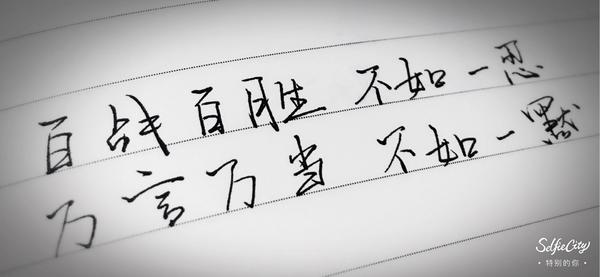 百战百胜 不如一忍
万言万当 不如一默
SelfieCity
·特别的你·